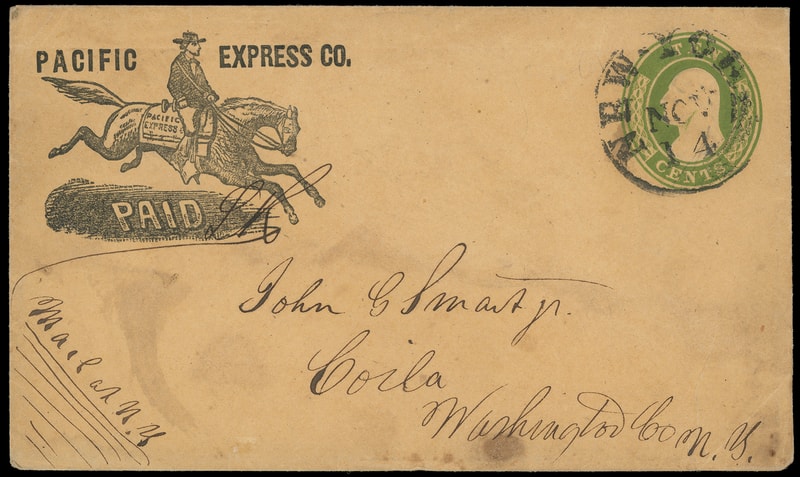 PACIFIC EXPRESS CO.
PACIFIC
EXPRESS
PAID
NEW-YORK
NOV
14
CENTS
John G Smart jr.
Coila
Washington Co N. Y.
Mail at N. Y